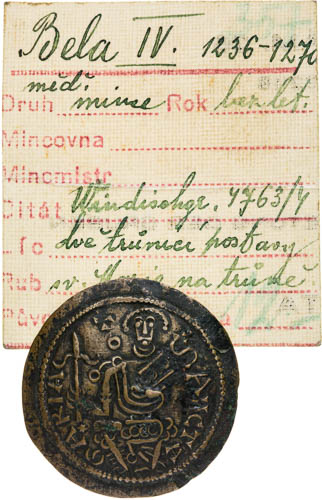 Bela IV. 1236-1270
měď.
Druh mince Rok bez let.
Mincovna
Mincmistr
Citát Windischgr. 4763/4
Líc dvě trůnící postavy
Rub sv. Marie na trůně
SANCTA
MARIA